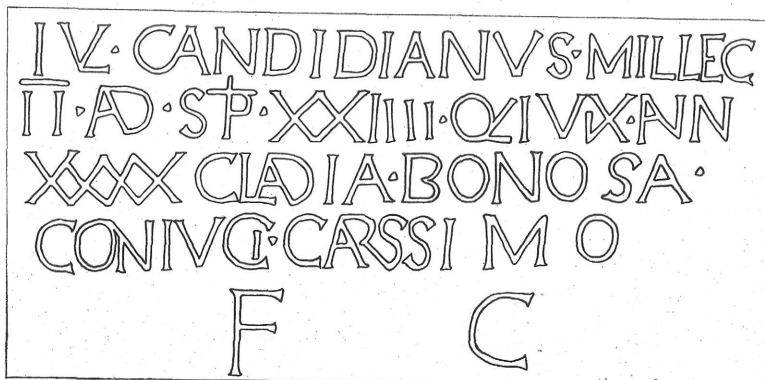 IVL · CANDIDIANVS · MIL LEG
II · AD · STIP · XXIIII · QVI VIX · ANN
XXXX CLADIA · BONOSA ·
CONIVGI · CARSSIMO
F C